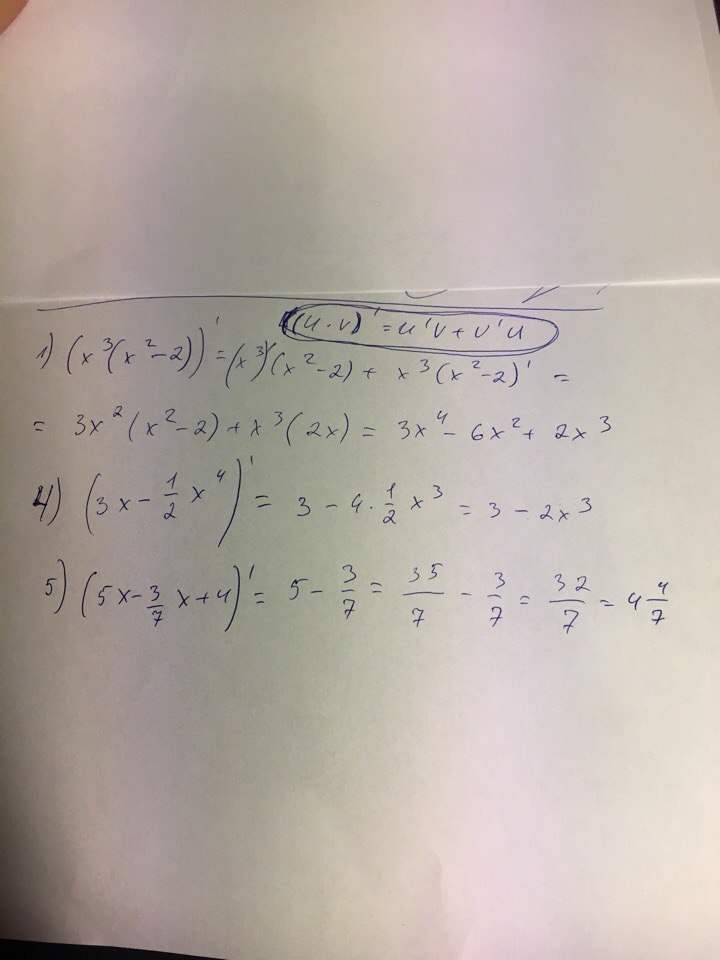 (u·v)' = u'v + v'u
1) (x³(x²-2))' = (x³)'(x²-2) + x³(x²-2)' =
= 3x²(x²-2) + x³(2x) = 3x⁴ - 6x² + 2x³
4) (3x - 1/2 x⁴)' = 3 - 4·1/2 x³ = 3 - 2x³
5) (5x - 3/7 x + 4)' = 5 - 3/7 = 35/7 - 3/7 = 32/7 = 4 4/7